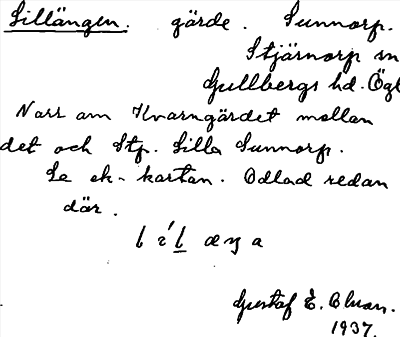 Lillängen. gärde. Sunnorp.
Stjärnorp sn
Gullbergs hd. Ögl
Norr om Kvarngärdet mellan
det och Stp. Lilla Sunnorp.
Se ek-kartan. Odlad redan
där.
Gustaf E.
1937.